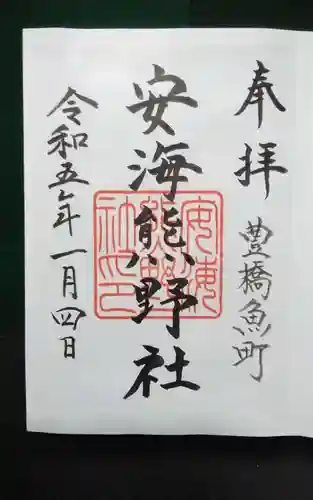 奉拝
豊橋魚町
安海熊野社
安海熊野社之印
令和五年一月四日